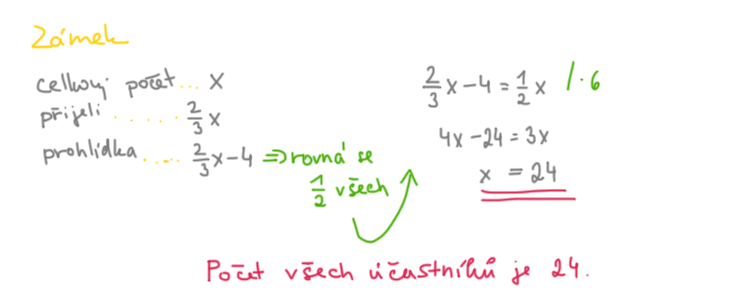 Zámek
celkový počet ... x
přijeli ...... 2/3 x
prohlídka .... 2/3 x - 4 ⇒ rovná se
1/2 všech
2/3 x - 4 = 1/2 x /·6
4x - 24 = 3x
x = 24
Počet všech účastníků je 24.